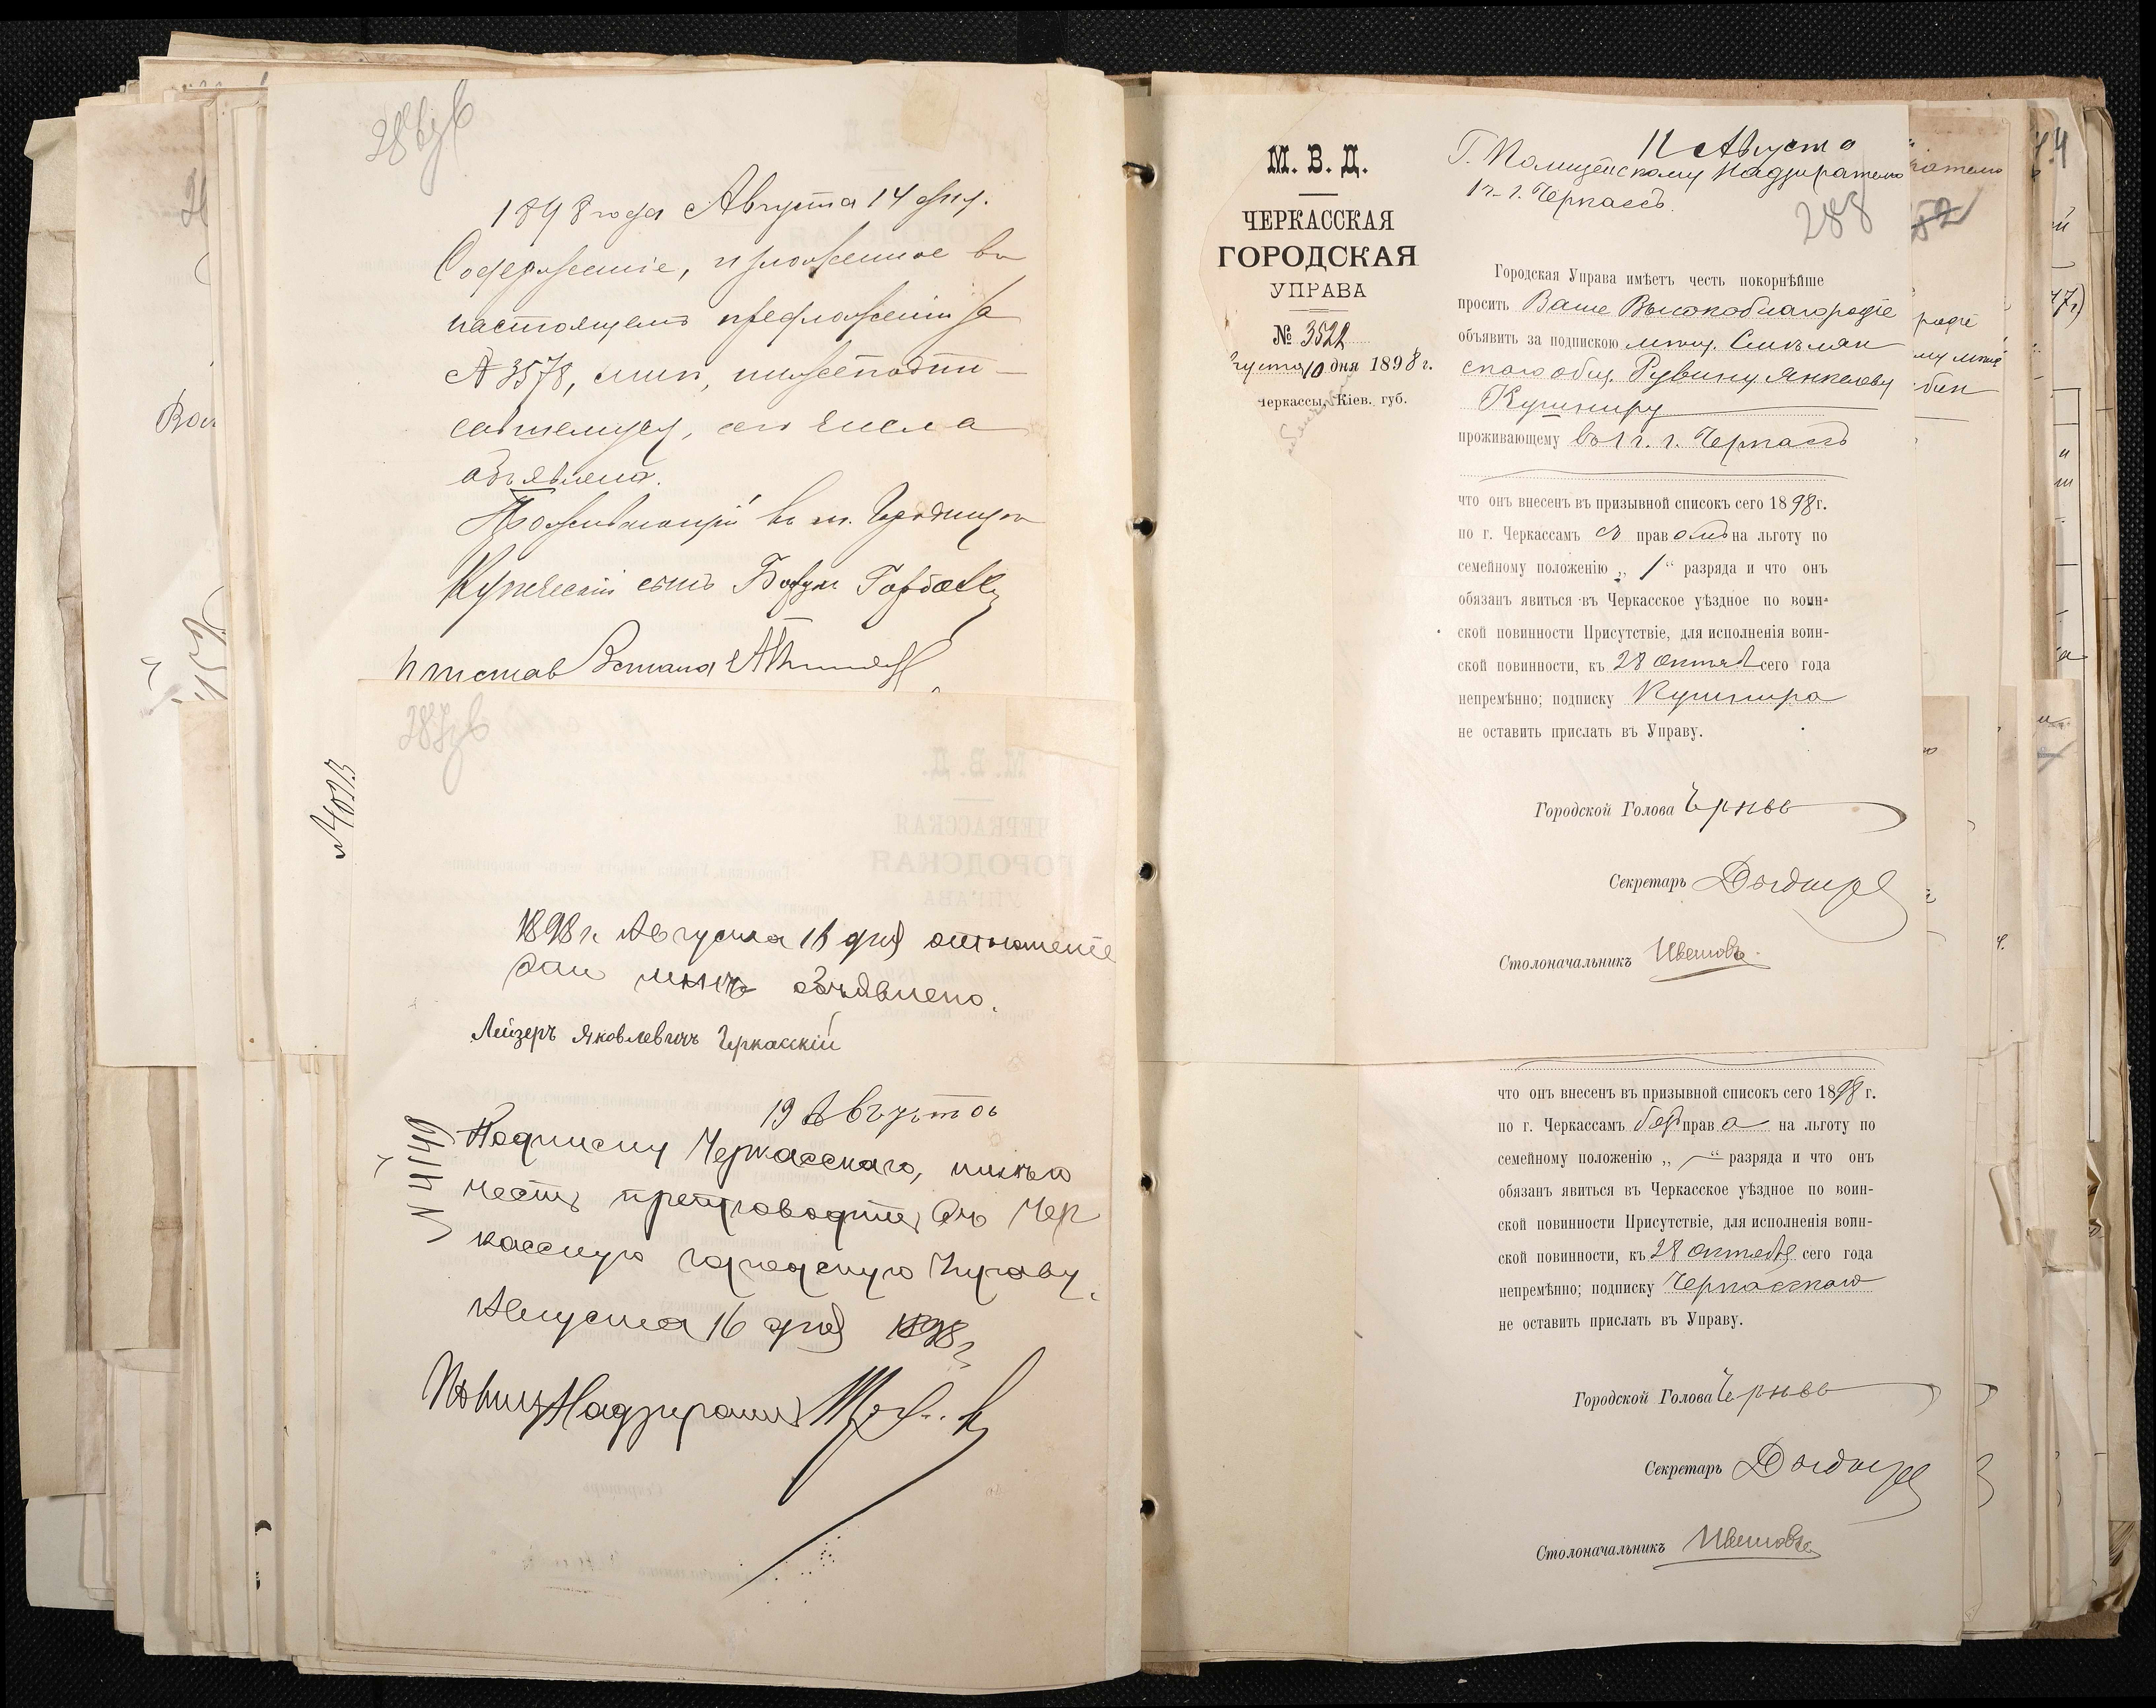 286зв
1898 года Августа 14 дня.
Содержаніе, изложенное въ
настоящемъ предложеніи за
№ 3578, мнѣ, нижеподпи-
савшемуся, сего числа
объявлено.
Проживающій въ м. Городищѣ
Купеческій сынъ
Приставъ 2 стана
287зв
1898 г. Августа 16 дня отношеніе
мнѣ объявлено.
Лейзеръ Яковлевичъ Черкасскій
19 Августа
№ 4149
Подписку Черкасскаго, имѣю
честь препроводить въ Чер
касскую городскую Управу.
Августа 16 дня 1898 г
Надзиратель
М. В. Д.
ЧЕРКАССКАЯ
ГОРОДСКАЯ
УПРАВА
№ 3522
густа 10 дня 1898 г.
Черкассы, Кіев. губ.
11 Августа
Г. Полицейскому Надзирателю
1 ч. г. Черкассъ.
288
Городская Управа имѣетъ честь покорнѣйше
просить Ваше Высокоблагородіе
объявить за подпискою мѣщ. Смѣлян
скаго общ. Рувину Янкелеву
Кушниру
проживающему въ 1 ч. г. Черкассъ
что онъ внесенъ въ призывной списокъ сего 1898 г.
по г. Черкассамъ съ правомъ на льготу по
семейному положенію „1“ разряда и что онъ
обязанъ явиться въ Черкасское уѣздное по воин-
ской повинности Присутствіе, для исполненія воин-
ской повинности, къ 28 октяб сего года
непремѣнно; подписку Кушнира
не оставить прислать въ Управу.
Городской Голова
Секретарь
Столоначальникъ
что онъ внесенъ въ призывной списокъ сего 1898 г.
по г. Черкассамъ безъ права на льготу по
семейному положенію „—“ разряда и что онъ
обязанъ явиться въ Черкасское уѣздное по воин-
ской повинности Присутствіе, для исполненія воин-
ской повинности, къ 28 октября сего года
непремѣнно; подписку Черкасскаго
не оставить прислать въ Управу.
Городской Голова
Секретарь
Столоначальникъ